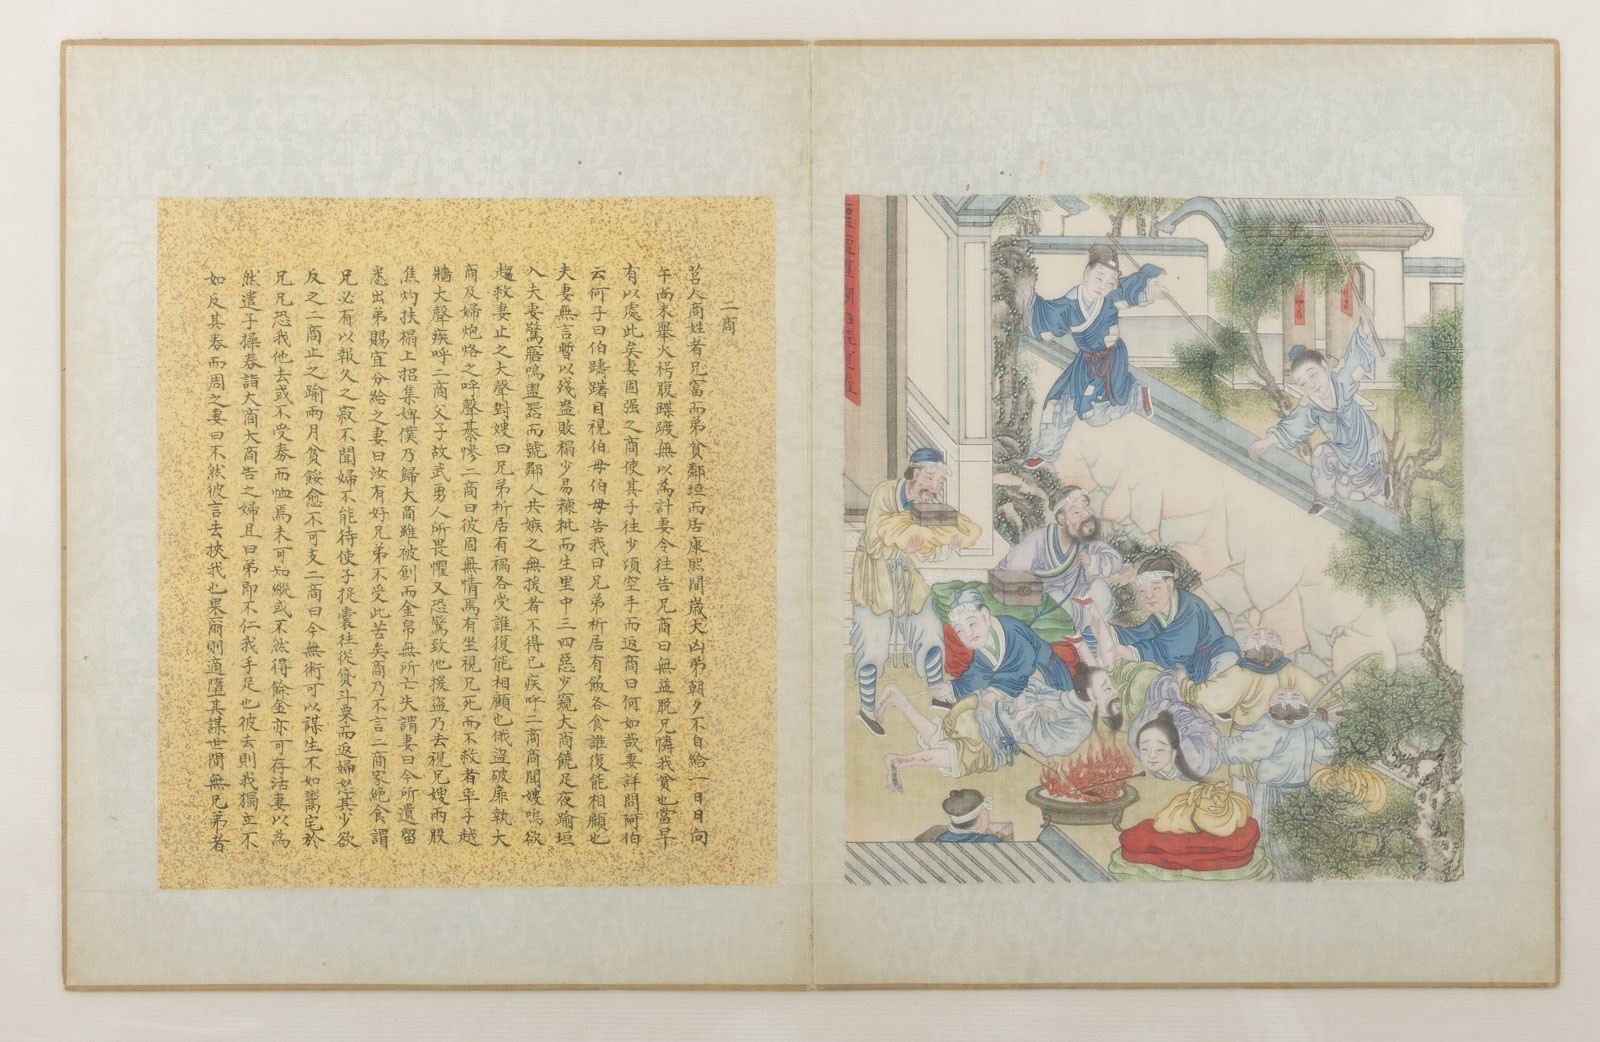 二商
莒人商姓者兄富而弟貧鄰垣而居康熙間歲大凶弟朝夕不自給一日日向
午尚未舉火枵腹蹀踱無以為計妻令往告兄商曰無益脫兄憐我貧也當早
有以處此矣妻固强之商使其子往少頃空手而返商曰何如哉妻詳問阿伯
云何子曰伯躊躇目視伯母伯母告我曰兄弟析居有飯各食誰復能相顧也
夫妻無言暫以殘盎敗榻少易糠粃而生里中三四惡少窺大商饒足夜踰垣
入夫妻驚寤鳴盥器而號鄰人共嫉之無援者不得已疾呼二商商聞嫂鳴欲
趨救妻止之大聲對嫂曰兄弟析居有禍各受誰復能相顧也俄盜破扉執大
商及婦炮烙之呼聲綦慘二商曰彼固無情焉有坐視兄死而不救者率子越
牆大聲疾呼二商父子故武勇人所畏懼又恐驚致他援盜乃去視兄嫂兩股
焦灼扶榻上招集婢僕乃歸大商雖被創而金帛無所亡失謂妻曰今所遺留
悉出弟賜宜分給之妻曰汝有好兄弟不受此苦矣商乃不言二商家絕食謂
兄必有以報久之寂不聞婦不能待使子捉囊往從貸斗粟而返婦怒其少欲
反之二商止之踰兩月貧餒愈不可支二商曰今無術可以謀生不如鬻宅於
兄兄恐我他去或不受券而恤焉未可知縱或不然得餘金亦可存活妻以為
然遣子操券詣大商大商告之婦且曰弟即不仁我手足也彼去則我獨立不
如反其券而周之妻曰不然彼言去挾我也果爾則適墮其謀世間無兄弟者